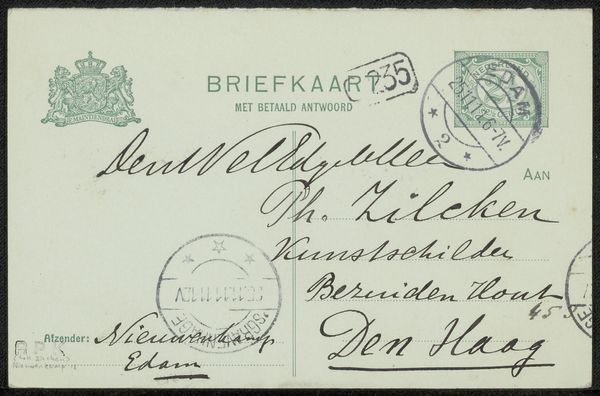 BRIEFKAART
MET BETAALD ANTWOORD
235
JE MAINTIENDRAI
NEDERLAND
EDAM
2
AAN
Den WelEdgeb. Heer
Ph. Zilcken
Kunstschilder
Bezuiden Hout
45
Den Haag
'S GRAVENHAGE
Afzender: Nieuwenkamp
Edam